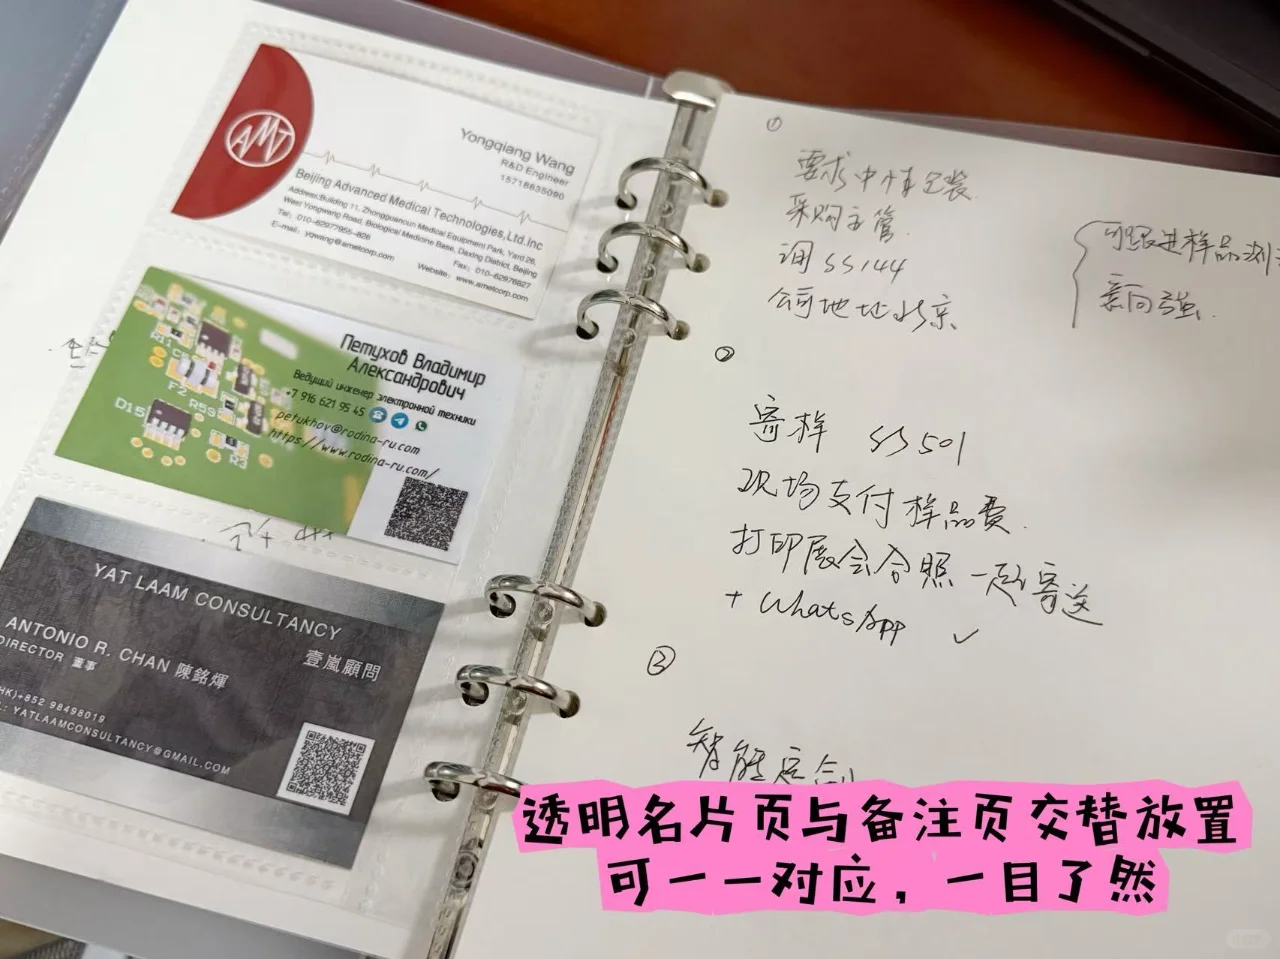 AMT
Yongqiang Wang
R&D Engineer
15718835090
Beijing Advanced Medical Technologies,Ltd.Inc
Address:Building 11, Zhongguancun Medical Equipment Park, Yard 26,
West Yongwang Road, Biological Medicine Base, Daxing District, Beijing
Tel: 010-62977955-826
Fax: 010-62976827
E-mail: yqwang@ametcorp.com
Website: www.ametcorp.com
R11
F2
R59
D15
Петухов Владимир
Александрович
Ведущий инженер электронной техники
+7 916 621 95 45
petukhov@rodina-ru.com
https://www.rodina-ru.com/
YAT LAAM CONSULTANCY
壹嵐顧問
ANTONIO R. CHAN 陳銘煇
DIRECTOR 董事
HK)+852 98498019
L: YATLAAMCONSULTANCY@GMAIL.COM
①
要求中性包装
采购主管
调 SS144
公司地址北京
可跟进样品测
意向强.
②
寄样 SS501
现场支付样品费.
打印展会合照一起寄送
+ WhatsApp ✓
③
智能定制
透明名片页与备注页交替放置
可一一对应，一目了然